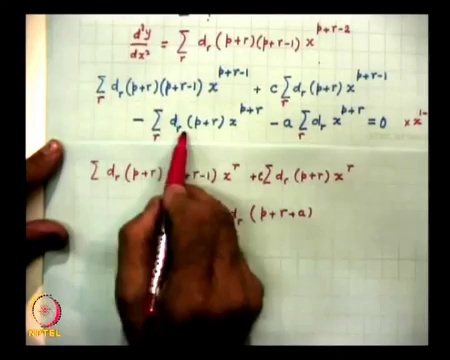 d²y/dx² = Σ_r d_r (p+r)(p+r-1) x^{p+r-2}
Σ_r d_r (p+r)(p+r-1) x^{p+r-1} + c Σ_r d_r (p+r) x^{p+r-1}
- Σ_r d_r (p+r) x^{p+r} - a Σ_r d_r x^{p+r} = 0 × x^{1-
Σ d_r (p+r) +r-1) x^r + c Σ d_r (p+r) x^r
d_r (p+r+a)
NPTEL